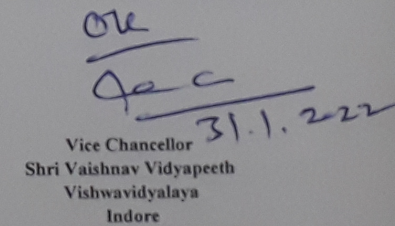 OK
31.1.2022
Vice Chancellor
Shri Vaishnav Vidyapeeth
Vishwavidyalaya
Indore